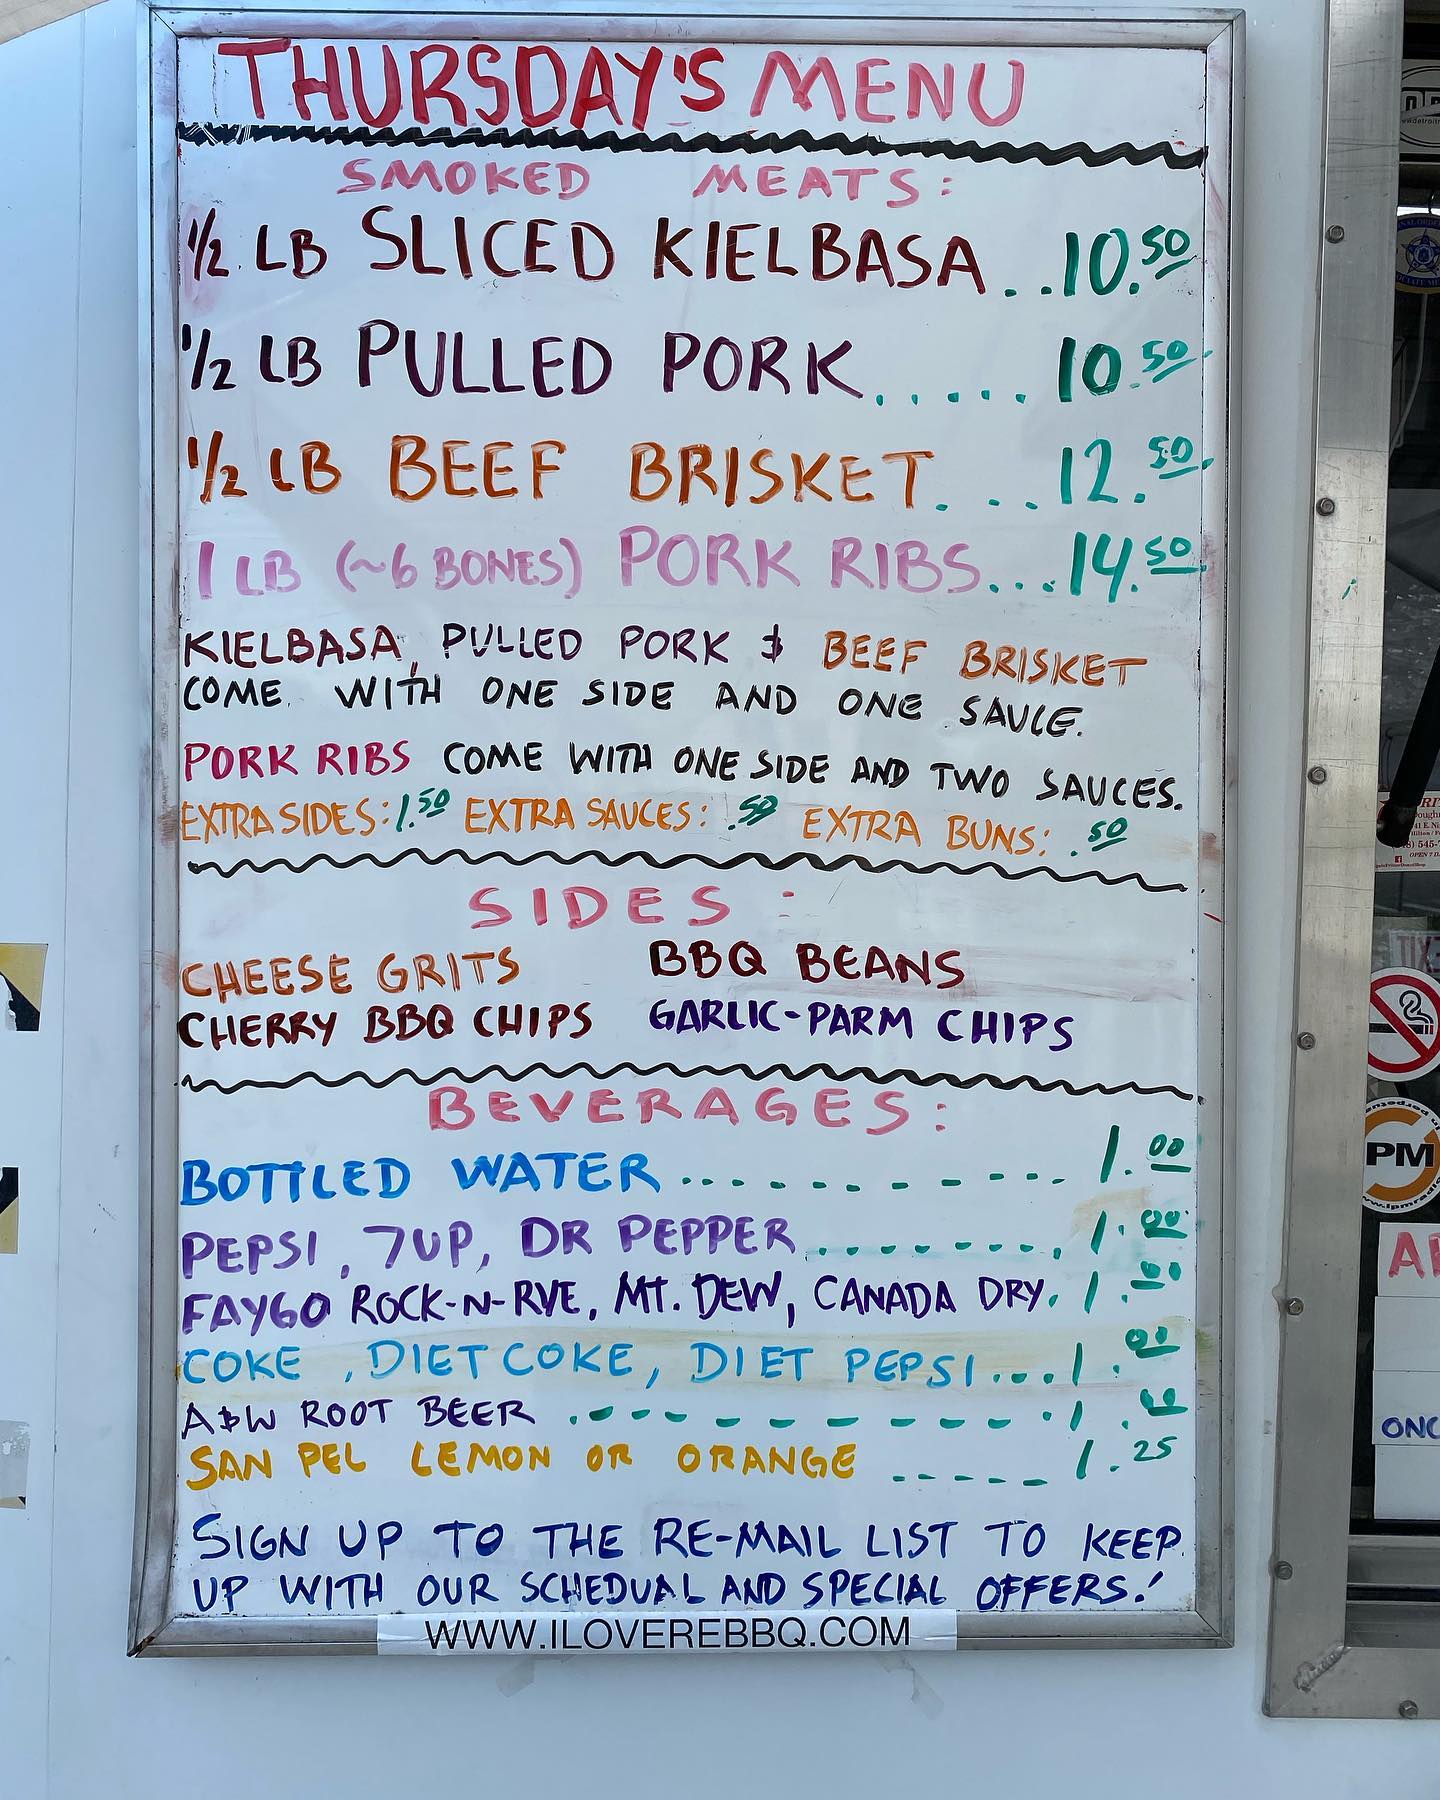 THURSDAY'S MENU
SMOKED MEATS:
1/2 LB SLICED KIELBASA..10.50
1/2 LB PULLED PORK.....10.50
1/2 LB BEEF BRISKET...12.50
1 LB (~6 BONES) PORK RIBS...14.50
KIELBASA, PULLED PORK & BEEF BRISKET
COME WITH ONE SIDE AND ONE SAUCE.
PORK RIBS COME WITH ONE SIDE AND TWO SAUCES.
EXTRA SIDES: 1.50 EXTRA SAUCES: .50 EXTRA BUNS: .50
SIDES:
CHEESE GRITS BBQ BEANS
CHERRY BBQ CHIPS GARLIC-PARM CHIPS
BEVERAGES:
BOTTLED WATER............1.00
PEPSI, 7UP, DR PEPPER.........1.00
FAYGO ROCK-N-RYE, MT. DEW, CANADA DRY. 1.00
COKE, DIET COKE, DIET PEPSI...1.00
A&W ROOT BEER ............1.00
SAN PEL LEMON OR ORANGE _____ 1.25
SIGN UP TO THE RE-MAIL LIST TO KEEP
UP WITH OUR SCHEDUAL AND SPECIAL OFFERS!
WWW.ILOVEREBBQ.COM
EXIT
PM
ONC